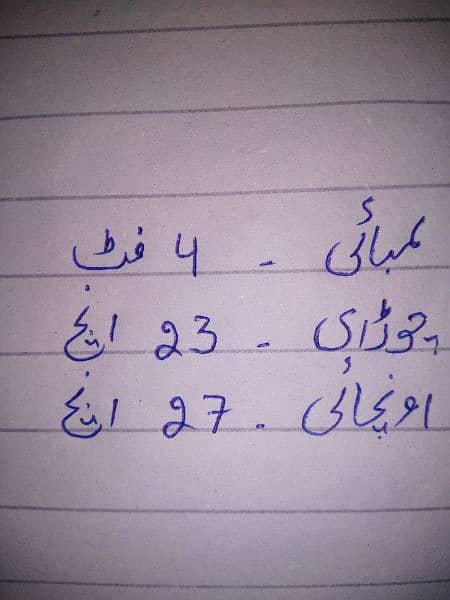 لمبائی - 4 فٹ
چوڑای - 23 انچ
اونچائی - 27 انچ